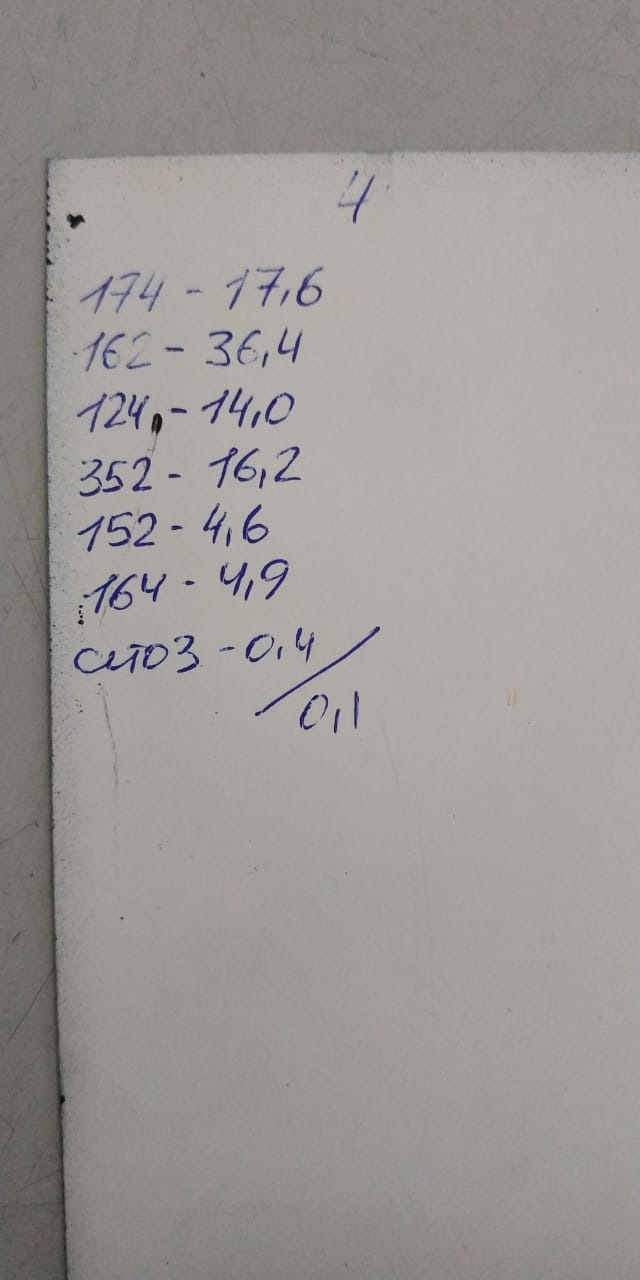 4
174 - 17,6
162 - 36,4
124 - 14,0
352 - 16,2
152 - 4,6
164 - 4,9
сито3 - 0,4 /
0,1